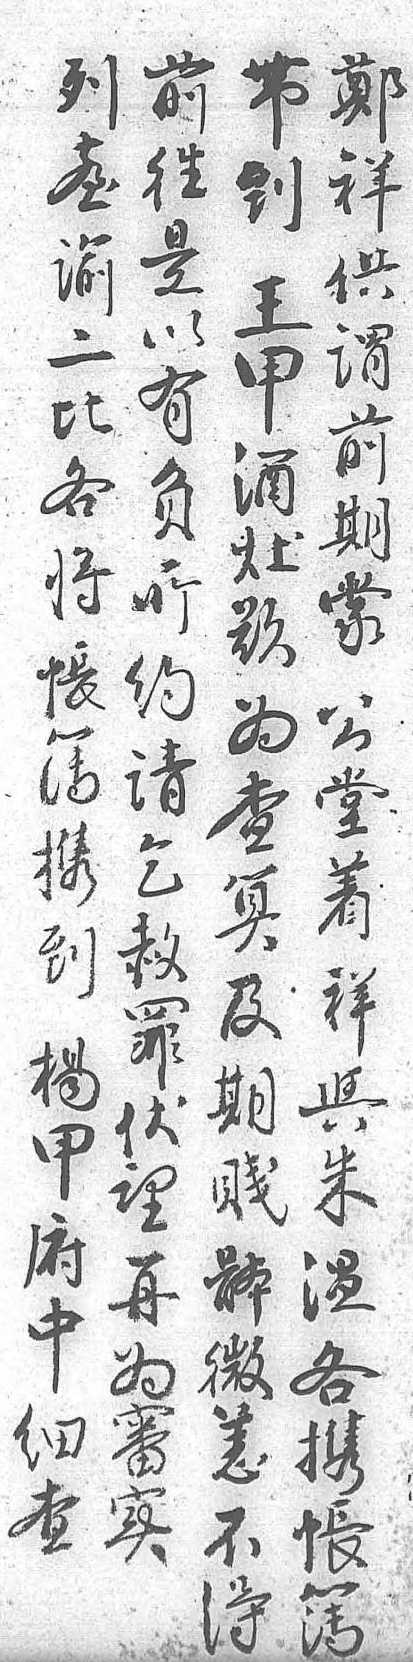 鄭祥供謂前期蒙公堂着祥與朱温各携帳簿
帶到王甲酒灶欵為查算及期賤體微恙不得
前徃是以有負所約請乞赦罪伏望再為審实
列臺諭二比各将帳簿携到楊甲府中細查